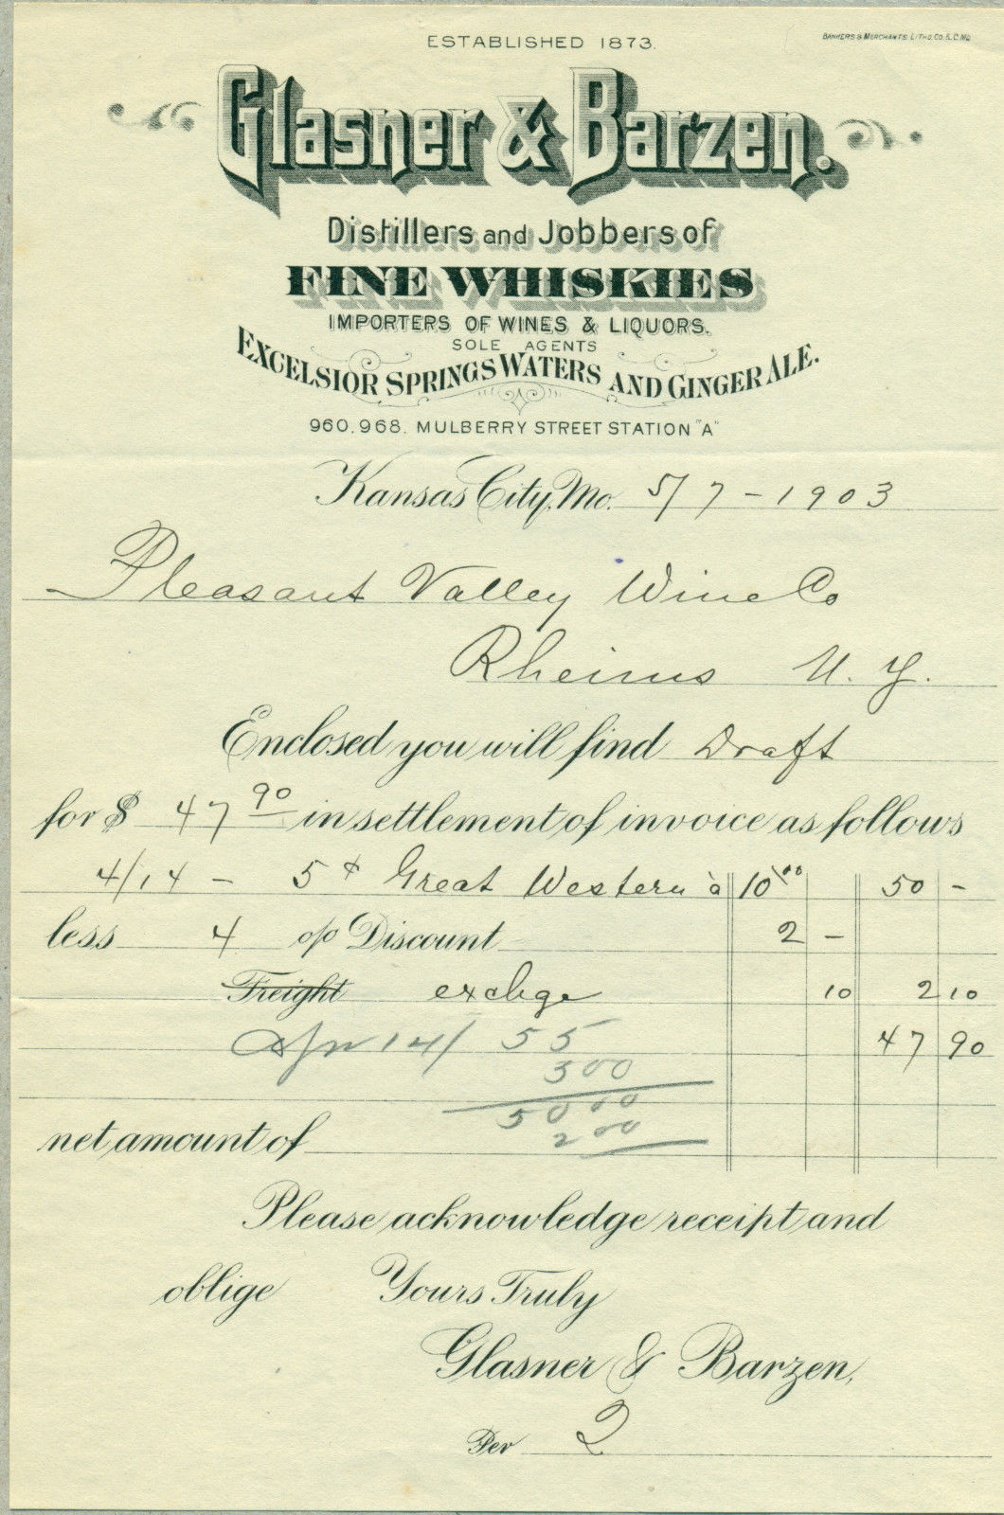 ESTABLISHED 1873.
BANKERS & MERCHANTS LITHO. CO. K.C. MO.
Glasner & Barzen.
Distillers and Jobbers of
FINE WHISKIES
IMPORTERS OF WINES & LIQUORS.
SOLE AGENTS
EXCELSIOR SPRINGS WATERS AND GINGER ALE.
960.968. MULBERRY STREET STATION "A"
Kansas City, Mo. 5/7-1903
Pleasant Valley Wine Co
Rheims N. Y.
Enclosed you will find Draft
for $ 47 90 in settlement of invoice as follows
4/14 - 5 Great Western à 10 00 50 -
less 4 o/o Discount 2 -
Freight exchge 10 2 10
Apr 14/ 55 47 90
300
50 00
2 00
net amount of
Please acknowledge receipt and
oblige Yours Truly
Glasner & Barzen,
Per